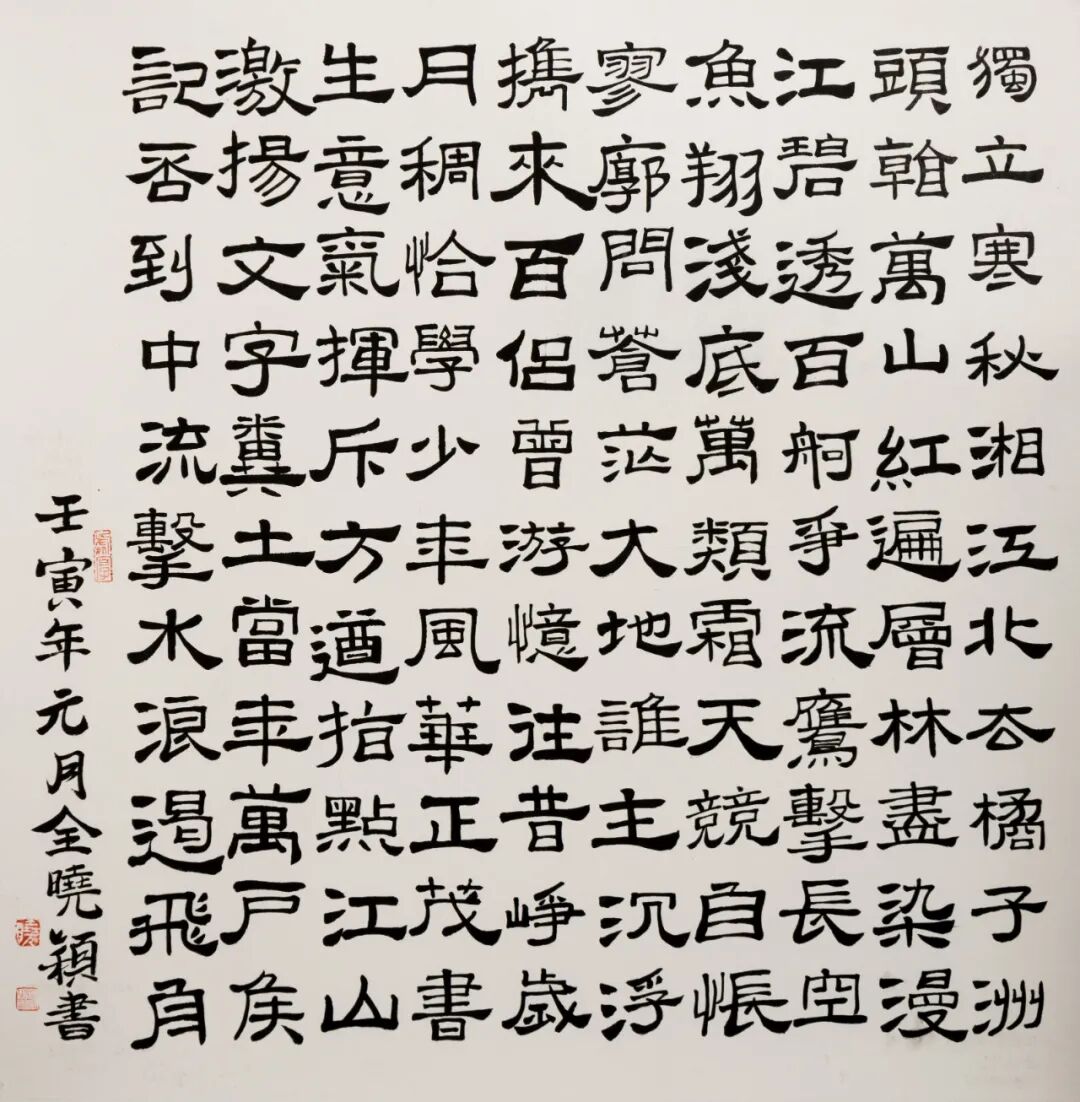 獨立寒秋湘江北去橘子洲
頭看萬山紅遍層林盡染漫
江碧透百舸爭流鷹擊長空
魚翔淺底萬類霜天競自悵
寥廓問蒼茫大地誰主沉浮
擕來百侶曾游憶往昔崢歲
月稠恰學少年風華正茂書
生意氣揮斥方遒指點江山
激揚文字糞土當年萬戶侯
記否到中流擊水浪遏飛舟
壬寅年元月全曉穎書